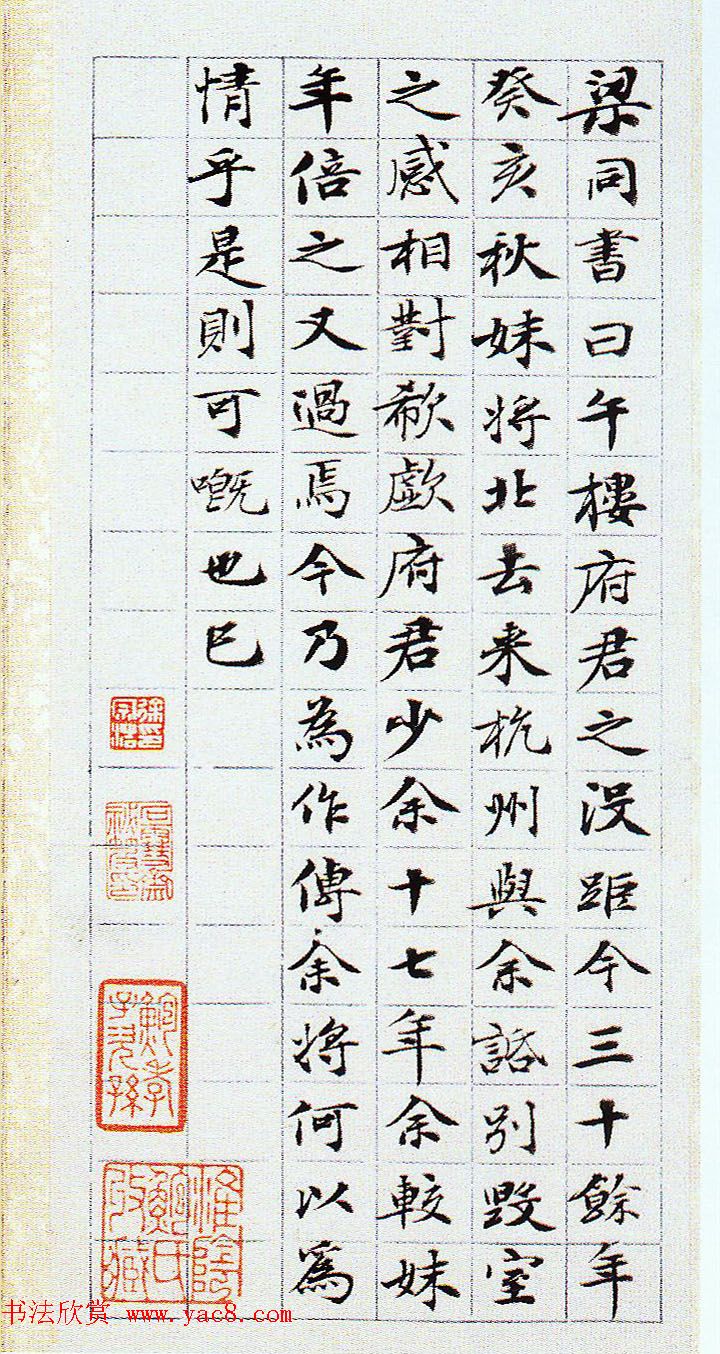 梁同書曰午樓府君之沒距今三十餘年
癸亥秋妹將北去来杭州與余話別毀室
之感相對欷歔府君少余十七年余較妹
年倍之又過焉今乃為作傳余將何以爲
情乎是則可嘅也已
淮陰
鮑氏
书法欣赏 www.yac8.com